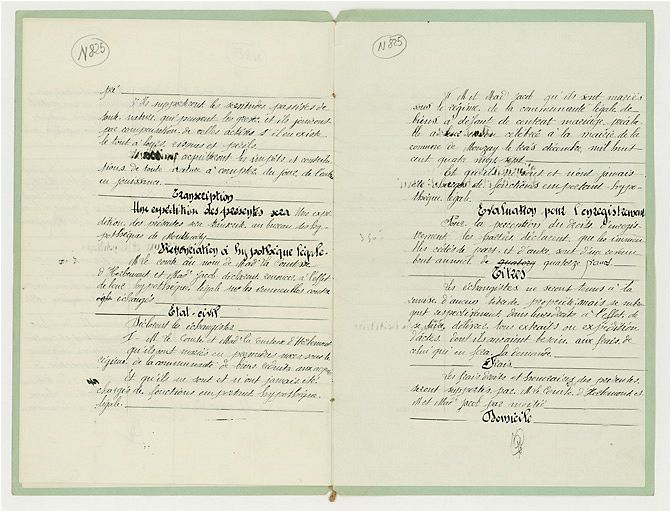 N 825
pé
3° Ils supporteront les servitudes passives de
toute nature qui peuvent les grever, et ils jouiront
en compensation de celles actives s'il en existe
le tout à leurs risques et périls.
acquitteront les impôts et contribu
tions de toute nature à compter du jour de l'entrée
en jouissance.
Transcription
Une expédition des présentes sera Une expé
dition des présentes sera transcrite au bureau des hy
pothèques de Montmédy
Renonciation à hypothèque légale
Mr le comte au nom de Mad la comtesse
d'Hoffemont et Mad Jacob déclarent renoncer à l'effet
de leur hypothèque légale sur les immeubles contre
échangés
Etat-civil
Déclarent les échangistes
1- M le Comte et Mad la Comtesse d'
qu'ils sont mariés en premières noces sous le
régime de la communauté de biens réduite aux acquêts
Et qu'il ne sont et n'ont jamais été
chargés de fonctions emportant hypothèque
légale.
N 825
M et Mad Jacob qu'ils sont mariés
sous le régime de la communauté légale de
biens à défaut de contrat mariage préala
célébré à la mairie de la
commune de Mouzay le trois décembre mil huit
cent quatre vingt sept
Et qu'ils ne sont et n'ont jamais
été chargés de fonctions emportant hypo
thèque légale.
Evaluation pour l'enregistrement
Pour la perception des droits d'enregis
trement les parties déclarent que les immeu
bles cédés de part et d'autre sont d'un revenu
brut annuel de quatorze francs
Titres
Les échangistes ne seront tenus à la
remise d'aucuns titres de propriété mais se subro
gent respectivement dans leurs droits à l'effet de
se faire délivrer tous extraits ou expédition
d'actes dont ils auraient besoin aux frais de
celui qui en fera la demande.
Frais
Les frais droits et honoraires des présentes
seront supportés par Mr le Comte d'
M et Mad Jacob par moitié
Domicile